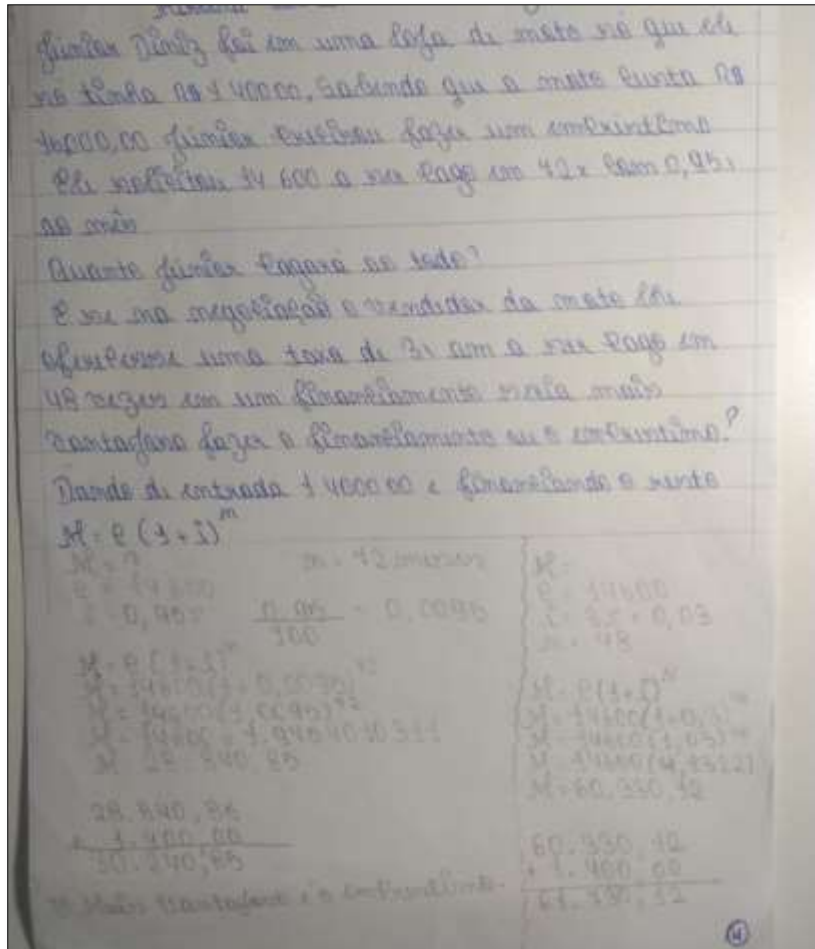 Júnior Diniz foi em uma loja de moto só que ele
só tinha R$ 1 400 00, Sabendo que a moto custa R$
16000,00 Júnior precisou fazer um empréstimo
Ele solicitou 14 600 a ser pago em 72x com 0,95%
ao mês
Quanto Júnior pagará ao todo?
E se na negociação o vendedor da moto lhe
oferecesse uma taxa de 3% am a ser pago em
48 vezes em um financiamento seria mais
vantajoso fazer o financiamento ou o empréstimo?
Dando de entrada 1 400 00 e financiando o resto
M = C (1 + i)^n
M = ?
n = 72 meses
C = 14 600
i = 0,95%
0,95 / 100 = 0,0095
M = C (1 + i)^n
M = 14600 (1 + 0,0095)^72
M = 14600 (1,0095)^72
M = 28.840,85
28.840,85
+ 1.400,00
30.240,85
M =
C = 14600
i = 3% = 0,03
n = 48
M = C (1 + i)^n
M = 14600 (1,03)^48
M = 14600 (4,1322)
M = 60.330,12
60.330,12
+ 1.400,00
61.730,12
Mais vantajoso é o empréstimo.